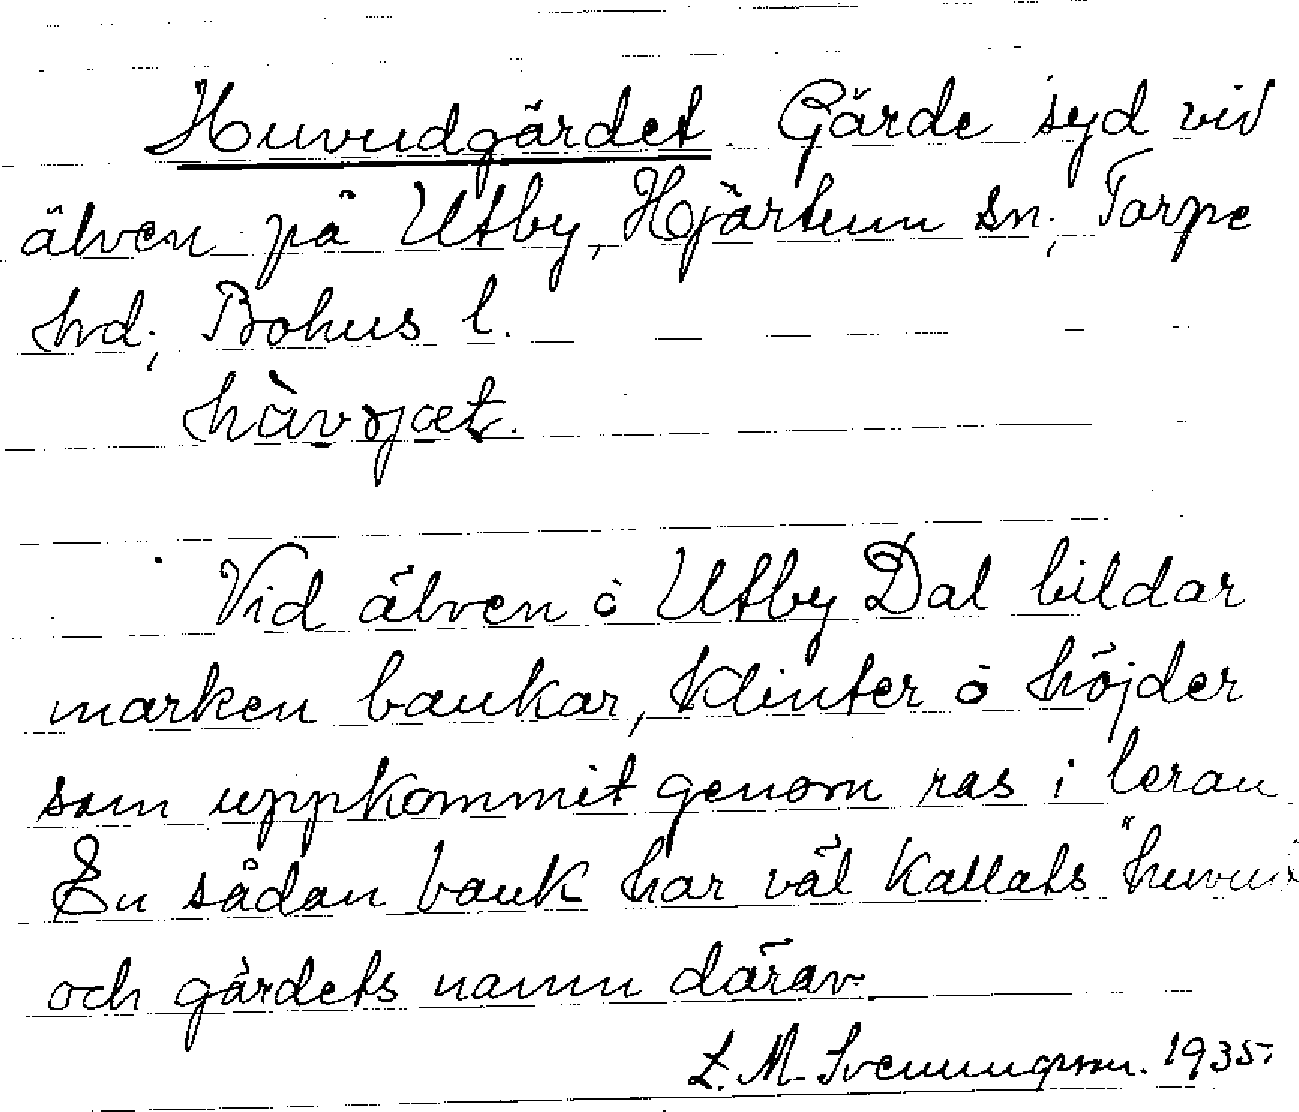 Huvudgärdet. Gärde syd vid
älven på Utby, Hjärtum sn; Torpe
hrd; Bohus l.

Vid älven å Utby Dal bildar
marken bankar, klinter å höjder
som uppkommit genom ras i leran
En sådan bank har väl kallats "huvud
och gärdets namn därav.
L. M. Svenungsson. 1935.